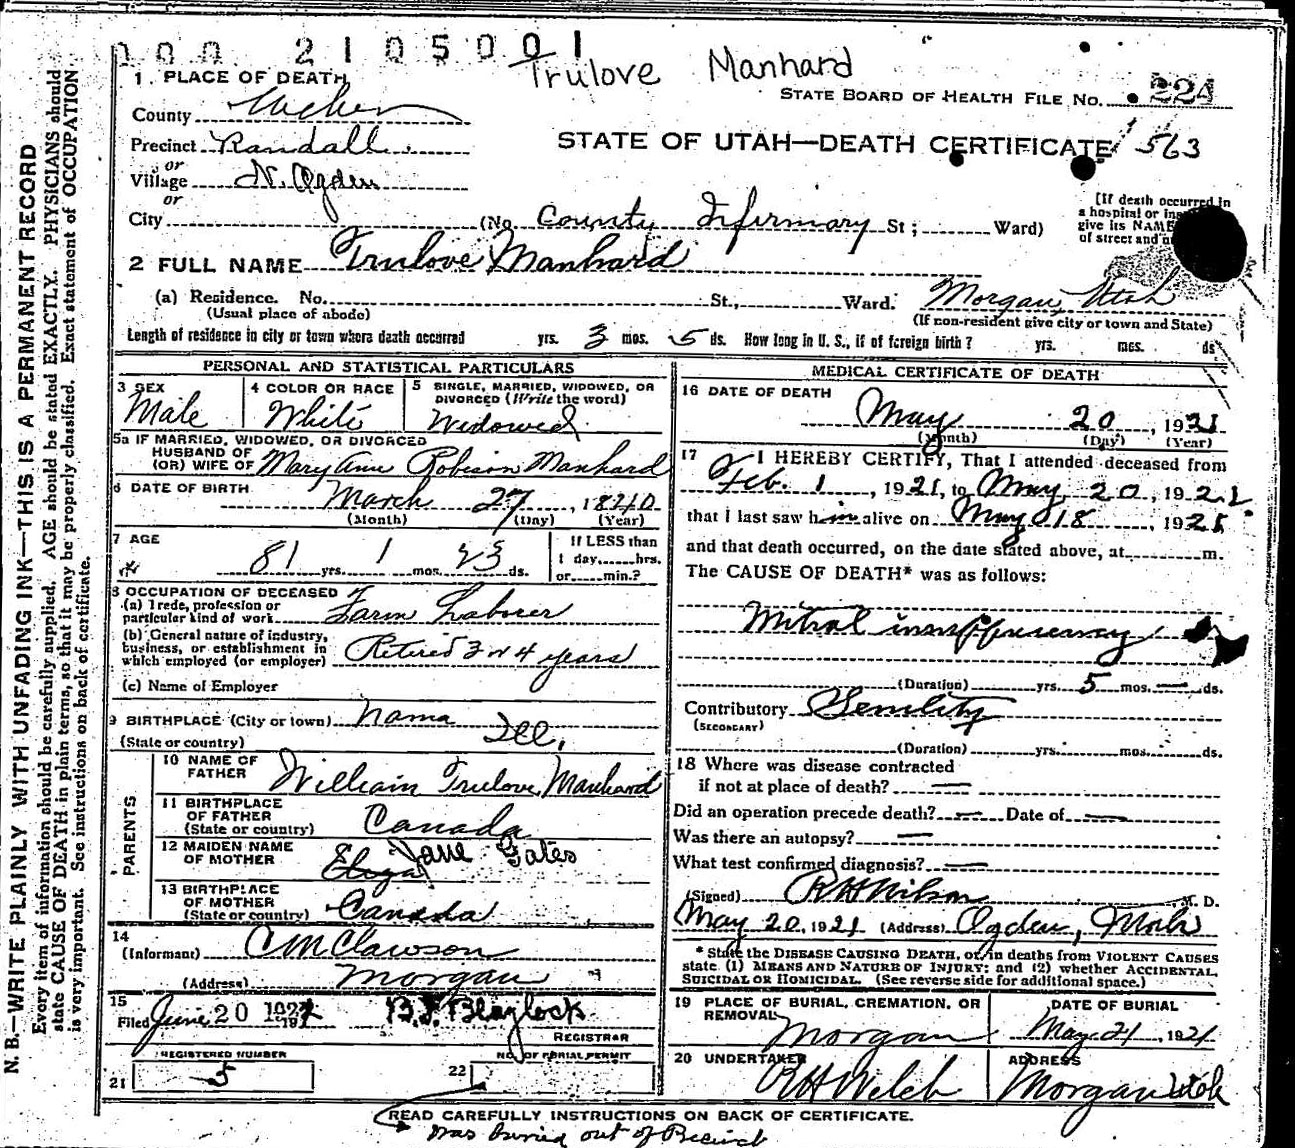 000 2105001
Trulove Manhard
1. PLACE OF DEATH
STATE BOARD OF HEALTH FILE NO. 224
County Weber
STATE OF UTAH—DEATH CERTIFICATE 563
Precinct Randall
or
Village N. Ogden
or
[If death occurred in
a hospital or
give its NAME
of street and
City (No. County Infirmary St; Ward)
2 FULL NAME Trulove Manhard
(a) Residence. No. St., Ward. Morgan, Utah
(Usual place of abode) (If non-resident give city or town and State)
Length of residence in city or town where death occurred yrs. 3 mos. 5 ds. How long in U. S., if of foreign birth? yrs. mos. ds
PERSONAL AND STATISTICAL PARTICULARS
3 SEX
Male
4 COLOR OR RACE
White
5 SINGLE, MARRIED, WIDOWED, OR
DIVORCED (Write the word)
Widowed
5a IF MARRIED, WIDOWED, OR DIVORCED
HUSBAND OF
(OR) WIFE OF Mary Ann Robison Manhard
6 DATE OF BIRTH March 27, 1840
(Month) (Day) (Year)
7 AGE
81 yrs. 1 mos. 23 ds.
If LESS than
1 day, hrs.
or min.?
8 OCCUPATION OF DECEASED
(a) Trade, profession or
particular kind of work Farm Laborer
(b) General nature of industry,
business, or establishment in
which employed (or employer) Retired 3 or 4 years
(c) Name of Employer
9 BIRTHPLACE (City or town) Nama
(State or country) Ill.
PARENTS
10 NAME OF
FATHER William Trulove Manhard
11 BIRTHPLACE
OF FATHER
(State or country) Canada
12 MAIDEN NAME
OF MOTHER Eliza Jane Gates
13 BIRTHPLACE
OF MOTHER
(State or country) Canada
14
(Informant) C M Clawson
(Address) Morgan
15
Filed June 20 192 B.F. Blaylock
REGISTRAR
REGISTERED NUMBER
21 5
NO. OF BURIAL PERMIT
22
MEDICAL CERTIFICATE OF DEATH
16 DATE OF DEATH
May 20, 1921
(Month) (Day) (Year)
17 I HEREBY CERTIFY, That I attended deceased from
Feb. 1, 1921, to May 20, 1921.
that I last saw him alive on May 18, 1921
and that death occurred, on the date stated above, at m.
The CAUSE OF DEATH* was as follows:
Mitral insufficiency
(Duration) yrs. 5 mos. — ds.
Contributory Senility
(SECONDARY)
(Duration) yrs. mos. ds.
18 Where was disease contracted
if not at place of death? —
Did an operation precede death? — Date of —
Was there an autopsy? —
What test confirmed diagnosis? —
(Signed) R H Wilson M. D.
May 20, 1921 (Address) Ogden, Utah
* State the DISEASE CAUSING DEATH, or, in deaths from VIOLENT CAUSES
state (1) MEANS AND NATURE OF INJURY; and (2) whether ACCIDENTAL,
SUICIDAL OR HOMICIDAL. (See reverse side for additional space.)
19 PLACE OF BURIAL, CREMATION, OR
REMOVAL
Morgan
DATE OF BURIAL
May 21, 1921
20 UNDERTAKER
R H Welch
ADDRESS
Morgan Utah
READ CAREFULLY INSTRUCTIONS ON BACK OF CERTIFICATE.
Was buried out of Precinct
N. B.—WRITE PLAINLY WITH UNFADING INK—THIS IS A PERMANENT RECORD
Every item of information should be carefully supplied. AGE should be stated EXACTLY. PHYSICIANS should
state CAUSE OF DEATH in plain terms, so that it may be properly classified. Exact statement of OCCUPATION
is very important. See instructions on back of certificate.